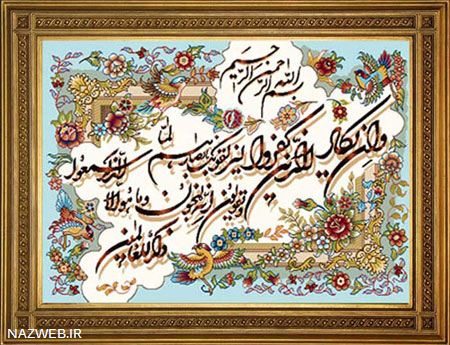 بسم الله الرحمن الرحیم
وان یکاد الذین کفروا لیزلقونک بابصارهم لما سمعوا الذکر
و یقولون انه لمجنون و ما هو الا
ذکر للعالمین
NAZWEB.IR